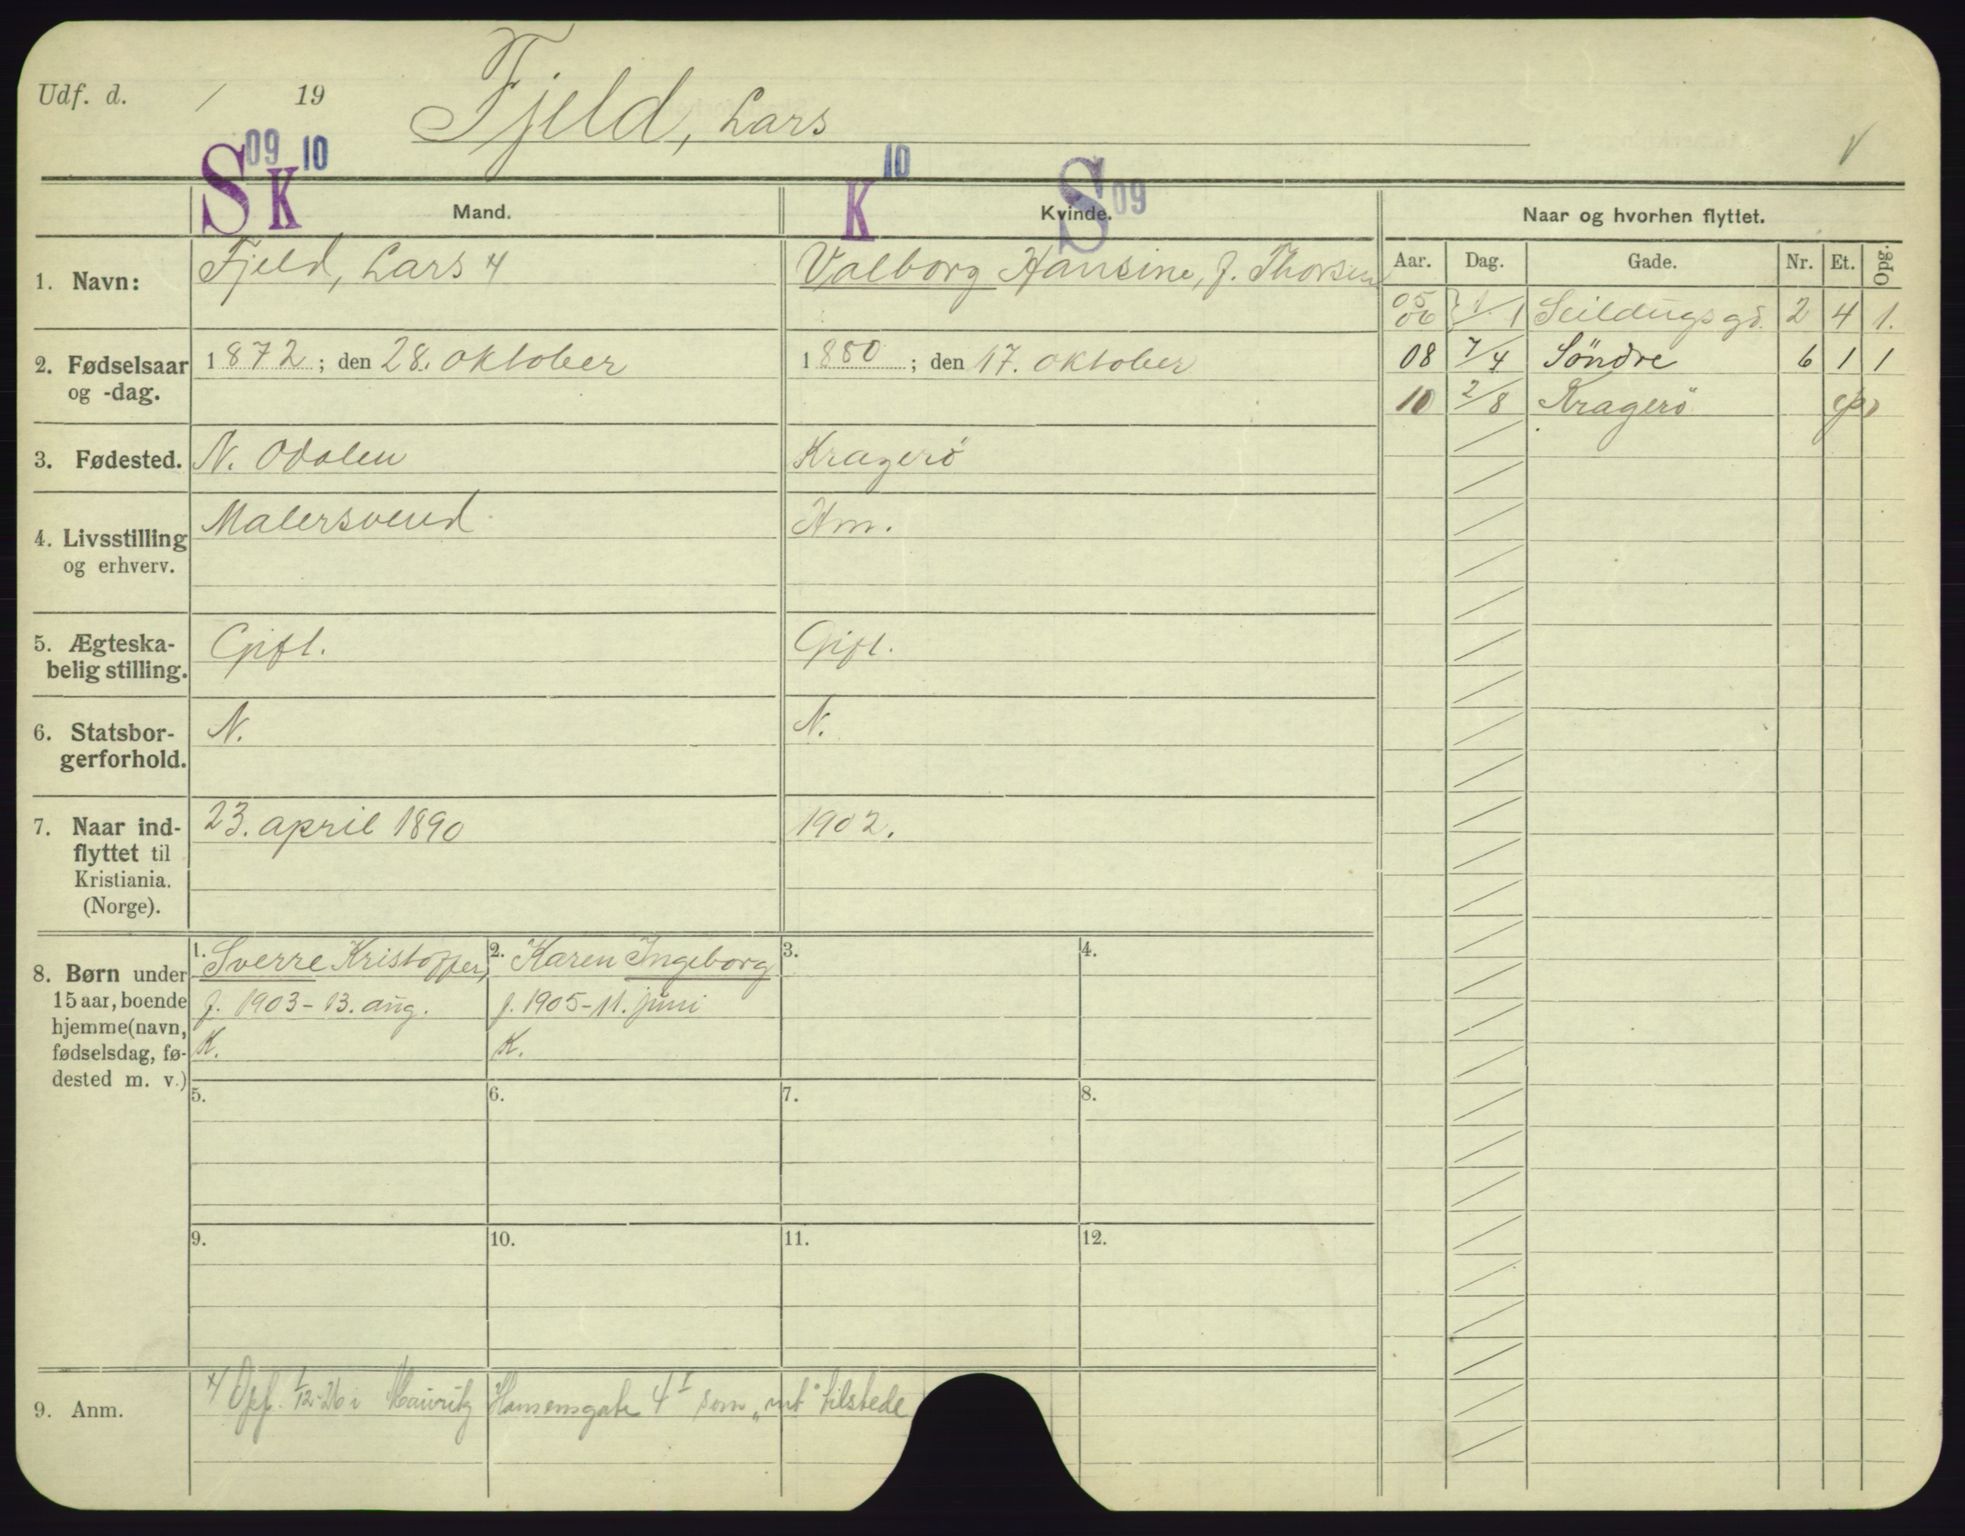 Udf. d. / 19 Fjeld, Lars
S 09 K 10 K 10 S 09
Mand. Kvinde. Naar og hvorhen flyttet.
Aar. Dag. Gade. Nr. Et. Opg.
1. Navn: Fjeld, Lars Valborg Hansine, f. Thorsen
05
06 1/1 Seildugsgd. 2 4 1.
2. Fødselsaar og -dag. 1872; den 28. oktober 1880; den 17. oktober
08 7/4 Söndre 6 1 1
10 2/8 Kragerö
3. Fødested. N. Odalen Kragerö
4. Livsstilling og erhverv. Malersvend Hm.
5. Ægteska-
belig stilling. Gift. Gift.
6. Statsbor-
gerforhold. N. N.
7. Naar ind-
flyttet til
Kristiania.
(Norge). 23. april 1890 1902.
8. Børn under
15 aar, boende
hjemme (navn,
fødselsdag, fø-
dested m. v.)
1. Sverre Kristoffer, 2. Karen Ingeborg 3. 4.
f. 1903 - 13. aug. f. 1905 - 11. juni
K. K.
5. 6. 7. 8.
9. 10. 11. 12.
9. Anm. Opf. 1/12-26 i Mauritz Hansensgate 4 I som "mt" tilstede